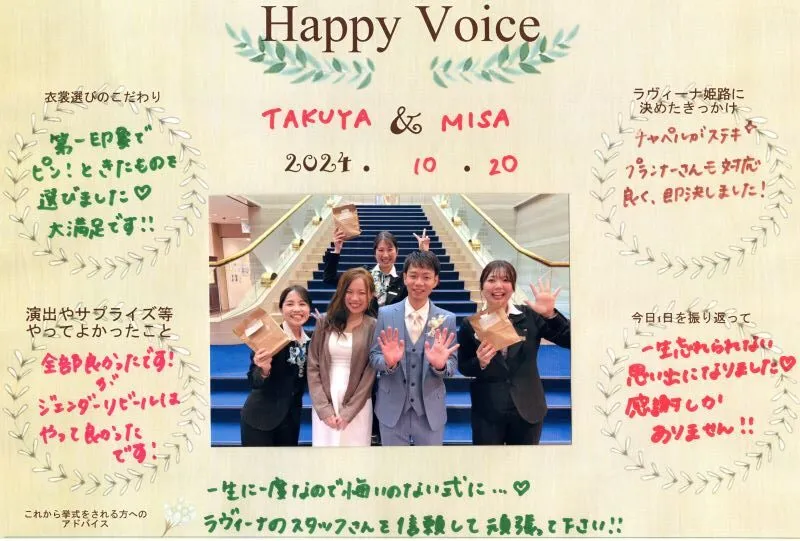 Happy Voice
TAKUYA & MISA
2024. 10. 20
衣裳選びのこだわり
第一印象で
ピン!ときたものを
選びました♡
大満足です!!
ラヴィーナ姫路に
決めたきっかけ
チャペルがステキ
プランナーさんも対応
良く、即決しました!
演出やサプライズ等
やってよかったこと
全部良かったです!
が
ジェンダーリビールは
やって良かった
です!
今日1日を振り返って
一生忘れられない
思い出になりました♡
感謝しか
ありません!!
これから挙式をされる方への
アドバイス
一生に一度なので悔いのない式に…♡
ラヴィーナのスタッフさんを信頼して頑張って下さい!!